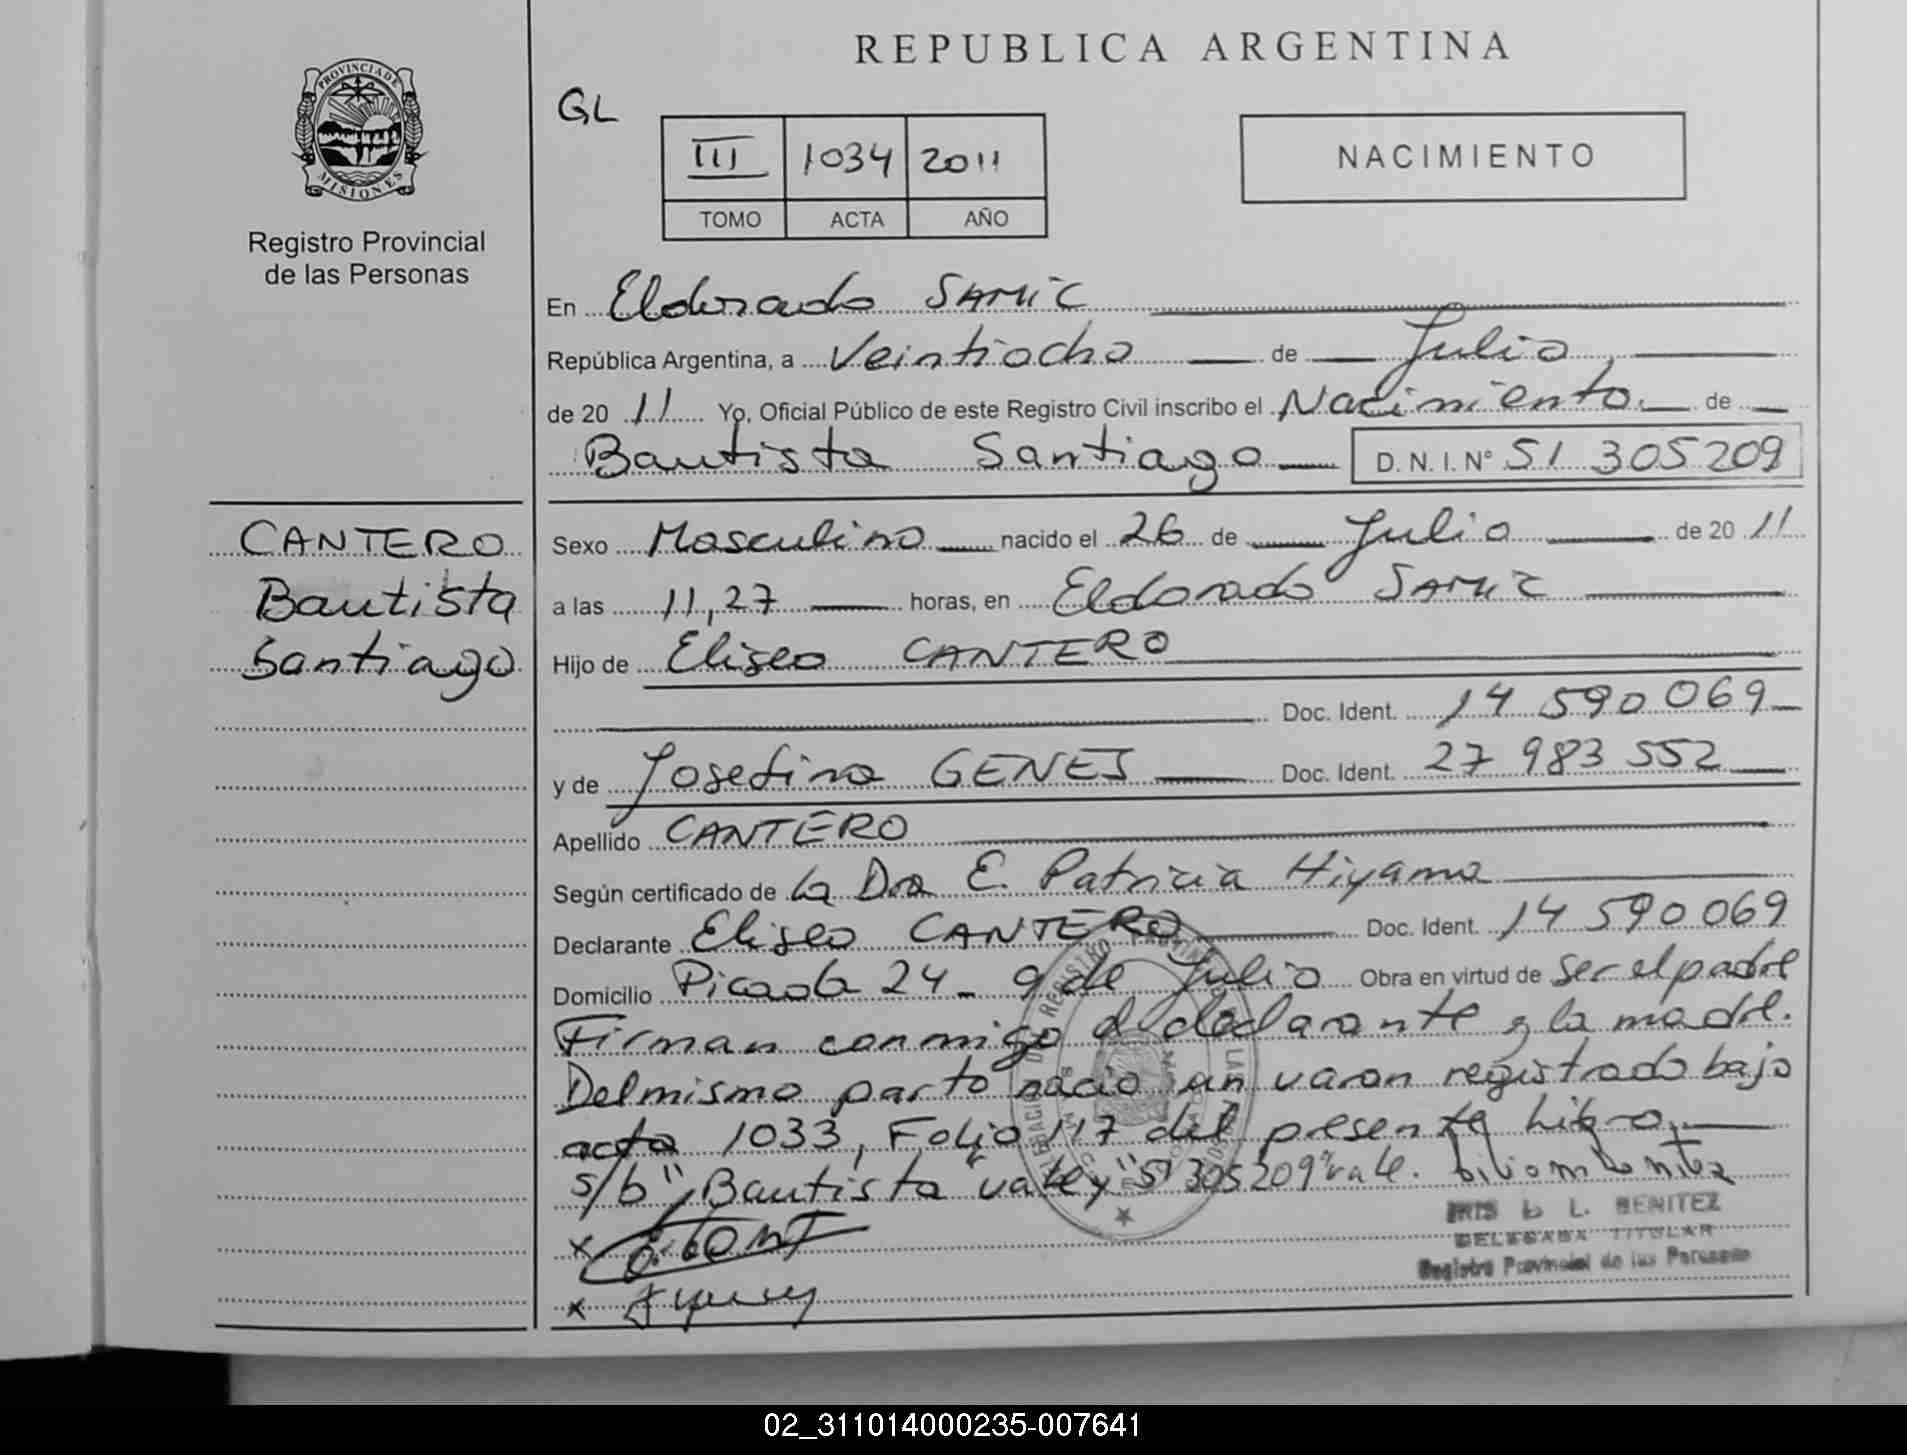 REPUBLICA ARGENTINA
PROVINCIA DE
MISIONES
Registro Provincial
de las Personas
GL
III 1034 2011
TOMO ACTA AÑO
NACIMIENTO
En Eldorado SAMIC
República Argentina, a Veintiocho de Julio
de 2011 Yo, Oficial Público de este Registro Civil inscribo el Nacimiento de
Bautista Santiago D.N.I.Nº 51 305209
CANTERO
Bautista
Santiago
Sexo Masculino nacido el 26 de Julio de 2011
a las 11,27 horas, en Eldorado SAMIC
Hijo de Eliseo CANTERO
Doc. Ident. 14 590069
y de Josefina GENES Doc. Ident. 27 983 552
Apellido CANTERO
Según certificado de la Dra E. Patricia Hiyama
Declarante Eliseo CANTERO Doc. Ident. 14 590069
Domicilio Picada 24 - 9 de Julio Obra en virtud de ser el padre
Firman conmigo el declarante y la madre.
Del mismo parto nacio un varon registrado bajo
acta 1033, Folio 117 del presente Libro.
s/b "Bautista" vale y "51305209" vale.
L. BENITEZ
DELEGADA TITULAR
Registro Provincial de las Personas
02_311014000235-007641